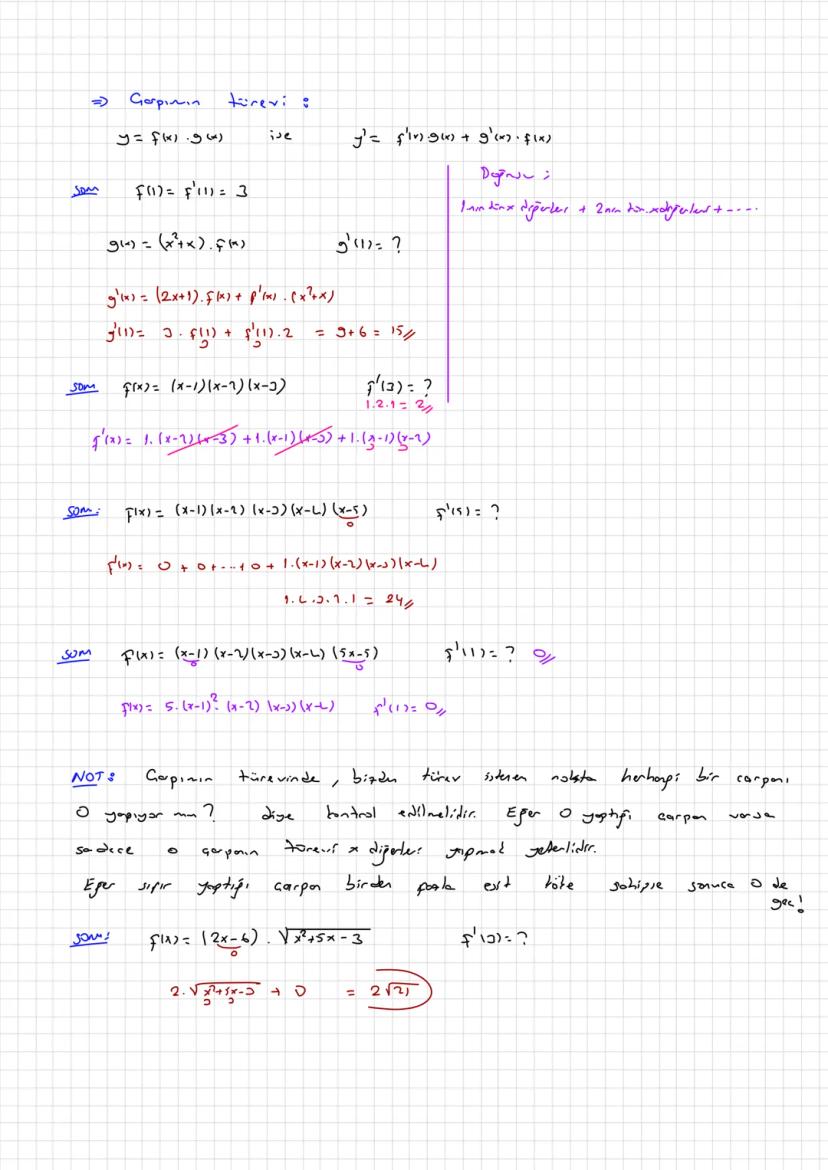 ⇒ Çarpımın türevi :
y = f(x) . g(x) ise y' = f'(x) . g(x) + g'(x) . f(x)
Soru f(1) = f'(1) = 3
g(x) = (x²+x) . f(x) g'(1) = ?
g'(x) = (2x+1) . f(x) + f'(x) . (x²+x)
g'(1) = 3 . f(1) + f'(1) . 2 = 9 + 6 = 15//
3 3
1.nin tür x diğerleri + 2.nin tür. x diğerleri + ----
Soru f(x) = (x-1)(x-2)(x-3) f'(3) = ?
1.2.1 = 2//
f'(x) = 1.(x-2)(x-3) + 1.(x-1)(x-3) + 1.(x-1)(x-2)
3 3
Soru: f(x) = (x-1)(x-2)(x-3)(x-4)(x-5) f'(5) = ?
0
f'(x) = 0 + 0 + ... + 0 + 1.(x-1)(x-2)(x-3)(x-4)
1.4.3.2.1 = 24//
Soru f(x) = (x-1)(x-2)(x-3)(x-4)(5x-5) f'(1) = ? 0//
0 0
f(x) = 5.(x-1)². (x-2)(x-3)(x-4) f'(1) = 0//
NOT: Çarpımın türevinde, bizden türev istenen nokta herhangi bir çarpanı
0 yapıyor mu? diye kontrol edilmelidir. Eğer 0 yaptığı çarpan varsa
sadece o çarpanın türevi x diğerleri yapmak yeterlidir.
Eğer sıfır yaptığı çarpan birden fazla eşit köke sahipse sonuca 0 de
geç!
Soru: f(x) = (2x-6) . √x²+5x-3 f'(3) = ?
0
2.√x²+5x-3 + 0 = 2√21
3 3